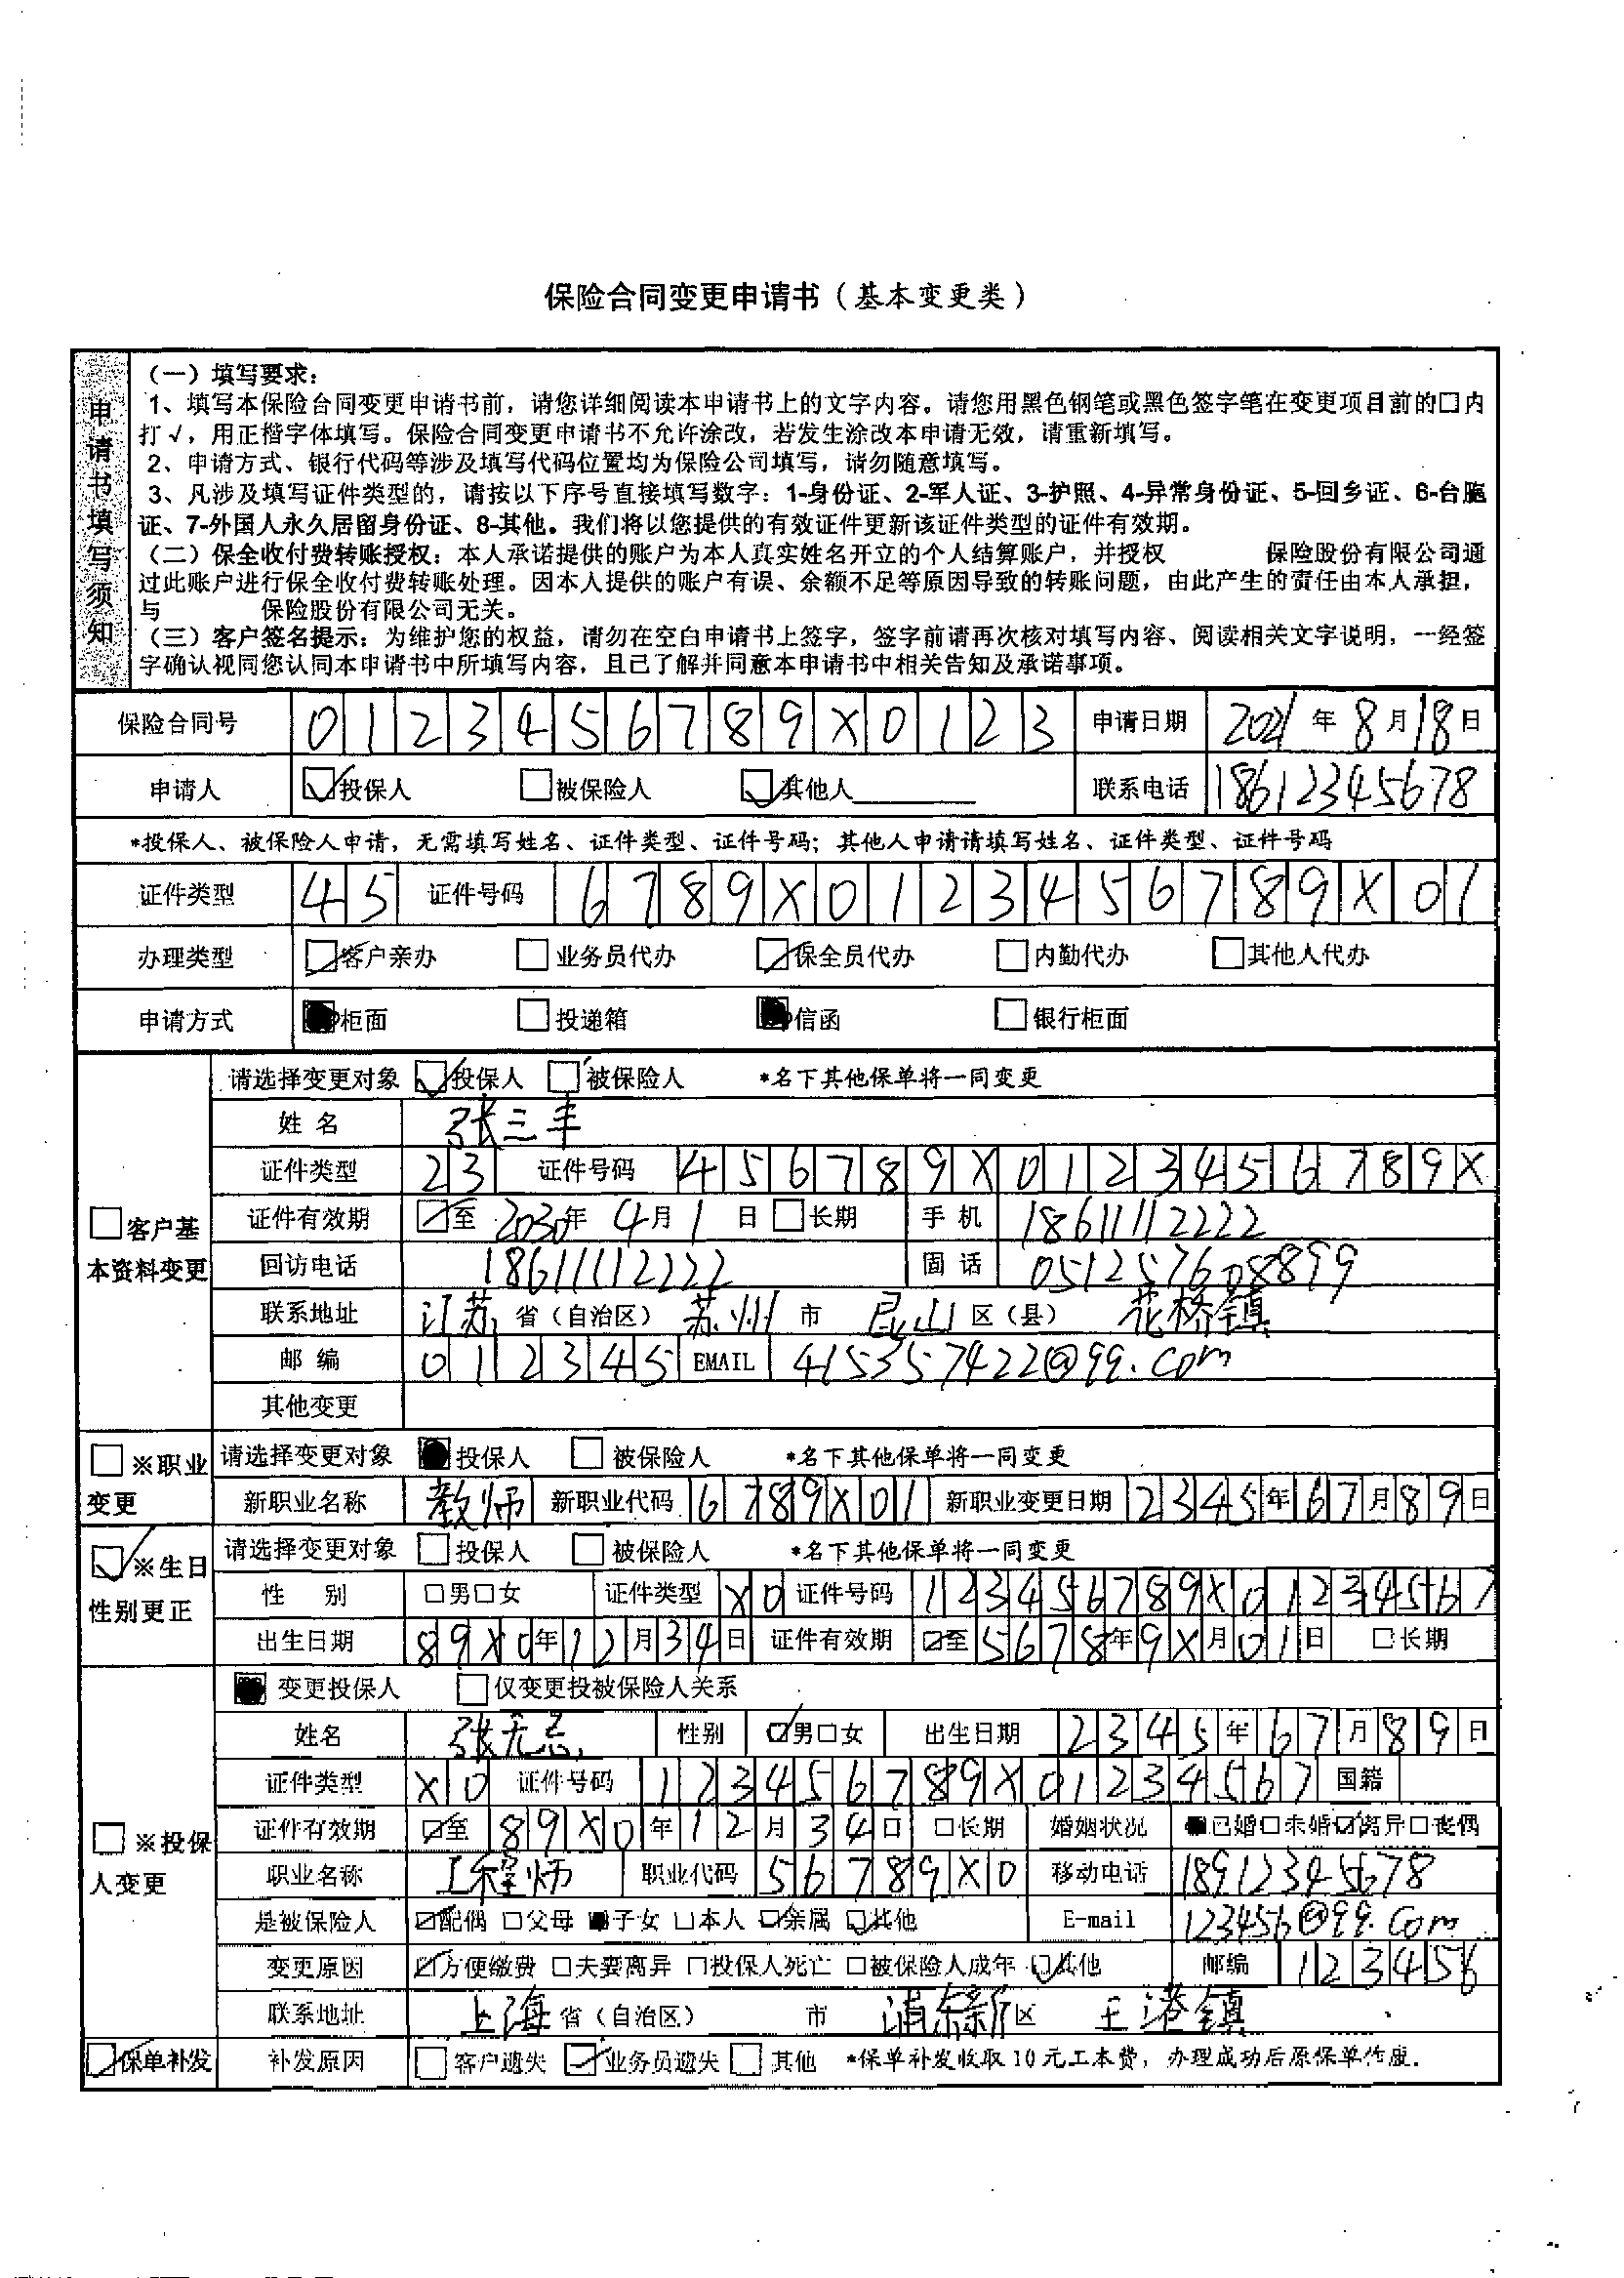 保险合同变更申请书（基本变更类）
申请书填写须知
（一）填写要求：
1、填写本保险合同变更申请书前，请您详细阅读本申请书上的文字内容。请您用黑色钢笔或黑色签字笔在变更项目前的□内
打√，用正楷字体填写。保险合同变更申请书不允许涂改，若发生涂改本申请无效，请重新填写。
2、申请方式、银行代码等涉及填写代码位置均为保险公司填写，请勿随意填写。
3、凡涉及填写证件类型的，请按以下序号直接填写数字：1-身份证、2-军人证、3-护照、4-异常身份证、5-回乡证、6-台胞
证、7-外国人永久居留身份证、8-其他。我们将以您提供的有效证件更新该证件类型的证件有效期。
（二）保全收付费转账授权：本人承诺提供的账户为本人真实姓名开立的个人结算账户，并授权 保险股份有限公司通
过此账户进行保全收付费转账处理。因本人提供的账户有误、余额不足等原因导致的转账问题，由此产生的责任由本人承担，
与 保险股份有限公司无关。
（三）客户签名提示：为维护您的权益，请勿在空白申请书上签字，签字前请再次核对填写内容、阅读相关文字说明，一经签
字确认视同您认同本申请书中所填写内容，且已了解并同意本申请书中相关告知及承诺事项。
保险合同号 0123456789X0123 申请日期 2021年8月18日
申请人 ☑投保人 □被保险人 ☑其他人 联系电话 18612345678
*投保人、被保险人申请，无需填写姓名、证件类型、证件号码；其他人申请请填写姓名、证件类型、证件号码
证件类型 45 证件号码 6789X0123456789X01
办理类型 ☑客户亲办 □业务员代办 ☑保全员代办 □内勤代办 □其他人代办
申请方式 ■柜面 □投递箱 ■信函 □银行柜面
□客户基本资料变更
请选择变更对象 ☑投保人 □被保险人 *名下其他保单将一同变更
姓名 张三丰
证件类型 23 证件号码 456789X0123456789X
证件有效期 ☑至 2030年4月1日 □长期 手机 18611112222
回访电话 18611112222 固话 051257608899
联系地址 江苏 省（自治区） 苏州 市 昆山 区（县） 花桥镇
邮编 012345 EMAIL 415357422@qq.com
其他变更
□※职业变更
请选择变更对象 ■投保人 □被保险人 *名下其他保单将一同变更
新职业名称 教师 新职业代码 6789X01 新职业变更日期 2345年67月89日
☑※生日性别更正
请选择变更对象 □投保人 □被保险人 *名下其他保单将一同变更
性别 □男□女 证件类型 X0 证件号码 123456789X01234567
出生日期 89X0年12月34日 证件有效期 ☑至5678年9X月01日 □长期
□※投保人变更
■变更投保人 □仅变更投被保险人关系
姓名 张无忌 性别 ☑男□女 出生日期 2345年67月89日
证件类型 X0 证件号码 123456789X01234567 国籍
证件有效期 ☑至89X0年12月34日 □长期 婚姻状况 ■已婚□未婚☑离异□丧偶
职业名称 工程师 职业代码 56789X0 移动电话 18912345678
是被保险人 ☑配偶 □父母 ■子女 □本人 ☑亲属 ☑其他 E-mail 123456@qq.com
变更原因 ☑方便缴费 □夫妻离异 □投保人死亡 □被保险人成年 ☑其他 邮编 123456
联系地址 上海 省（自治区） 市 浦东新区 王港镇
☑保单补发 补发原因 □客户遗失 ☑业务员遗失 □其他 *保单补发收取10元工本费，办理成功后原保单作废。